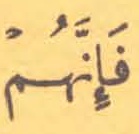 فَإِنَّهُمْ